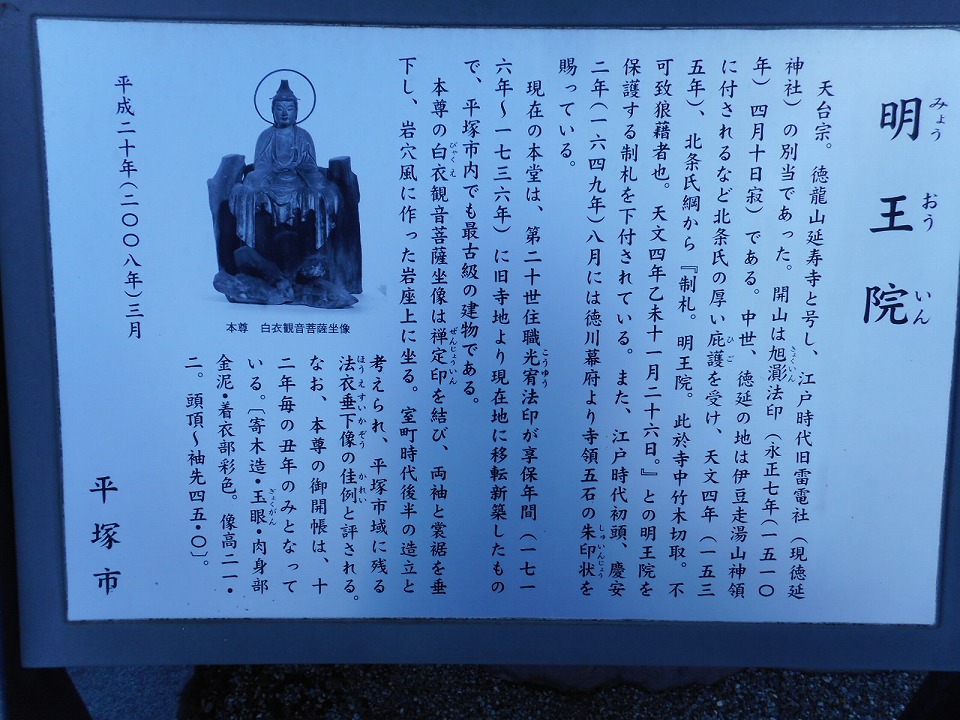 明王院
みょう おう いん
天台宗。徳龍山延寿寺と号し、江戸時代旧雷電社(現徳延
神社)の別当であった。開山は旭灜法印(永正七年(一五一〇
きょくいん
年)四月十日寂)である。中世、徳延の地は伊豆走湯山神領
に付されるなど北条氏の厚い庇護を受け、天文四年(一五三
ひご
五年)、北条氏綱から『制札。明王院。此於寺中竹木切取。不
可致狼藉者也。天文四年乙未十一月二十六日。』との明王院を
保護する制札を下付されている。また、江戸時代初頭、慶安
二年(一六四九年)八月には徳川幕府より寺領五石の朱印状を
しゅいんじょう
賜っている。
現在の本堂は、第二十世住職光宥法印が享保年間(一七一
こうゆう
六年〜一七三六年)に旧寺地より現在地に移転新築したもの
で、平塚市内でも最古級の建物である。
本尊の白衣観音菩薩坐像は禅定印を結び、両袖と裳裾を垂
びゃくえ ぜんじょういん
下し、岩穴風に作った岩座上に坐る。室町時代後半の造立と
考えられ、平塚市域に残る
法衣垂下像の佳例と評される。
ほうえすいかぞう かれい
なお、本尊の御開帳は、十
二年毎の丑年のみとなって
いる。〔寄木造・玉眼・肉身部
ぎょくがん
金泥・着衣部彩色。像高二一・
二。頭頂〜袖先四五・〇〕。
本尊 白衣観音菩薩坐像
平成二十年(二〇〇八年)三月
平塚市